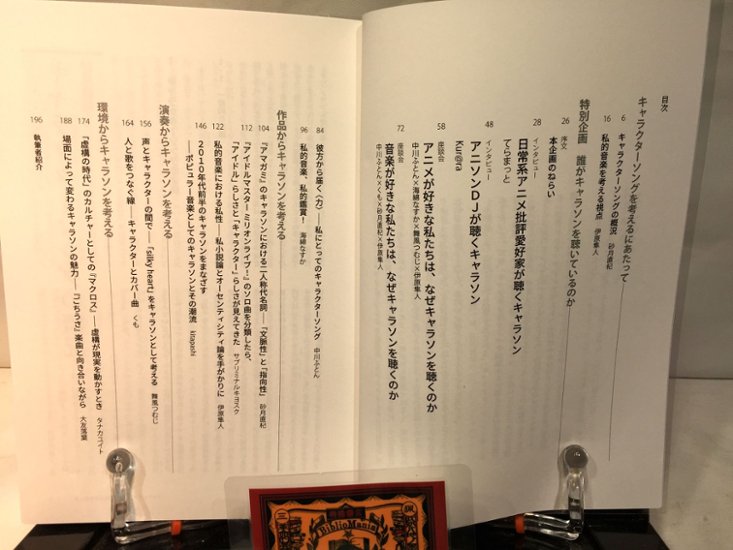 目次
キャラクターソングを考えるにあたって
6 キャラクターソングの概況 砂月直杞
16 私的音楽を考える視点 伊原隼人
特別企画 誰がキャラソンを聴いているのか
26 序文
本企画のねらい
28 インタビュー
日常系アニメ批評愛好家が聴くキャラソン
てらまっと
48 インタビュー
アニソンDJが聴くキャラソン
Kur@ra
58 座談会
アニメが好きな私たちは、なぜキャラソンを聴くのか
中川ふとん×海綿なすか×舞風つむじ×伊原隼人
72 座談会
音楽が好きな私たちは、なぜキャラソンを聴くのか
中川ふとん×くも×砂月直杞×伊原隼人
84 彼方から届く〈力〉――私にとってのキャラクターソング 中川ふとん
96 私的音楽、私的鑑賞! 海綿なすか
作品からキャラソンを考える
104 『アマガミ』のキャラソンにおける二人称代名詞――「文脈性」と「指向性」 砂月直杞
112 『アイドルマスター ミリオンライブ!』のソロ曲を分類したら、
「アイドル」らしさと「キャラクター」らしさが見えてきた サブリミナルキヨスク
122 私的音楽における私性――私小説論とオーセンティシティ論を手がかりに 伊原隼人
146 2010年代前半のキャラソンをまなざす
――ポピュラー音楽としてのキャラソンとその潮流 kitapashi
演奏からキャラソンを考える
156 声とキャラクターの間で――「silky heart」をキャラソンとして考える 舞風つむじ
164 人と歌をつなぐ線――キャラクターとカバー曲 くも
環境からキャラソンを考える
174 「虚構の時代」のカルチャーとしての『マクロス』――虚構が現実を動かすとき タナカユイト
188 場面によって変わるキャラソンの魅力――『こちうさ』楽曲と向き合いながら 大友落葉
196 執筆者紹介
BiblioMania